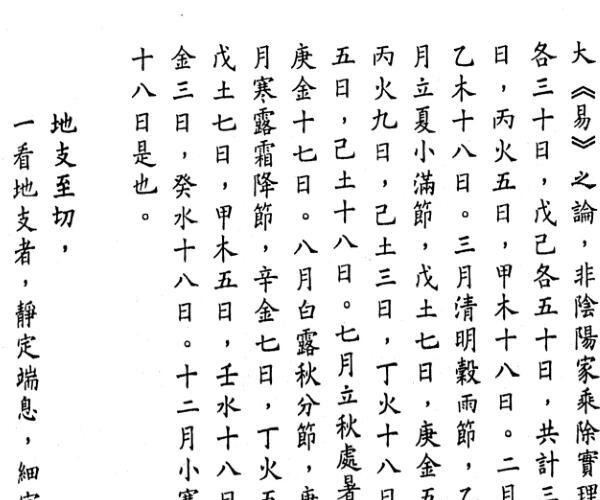 大《易》之論，非陰陽家乘除實理
各三十日，戊己各五十日，共計三
日，丙火五日，甲木十八日。二月
乙木十八日。三月清明穀雨節，乙
月立夏小滿節，戊土七日，庚金五
丙火九日，己土三日，丁火十八日
五日，己土十八日。七月立秋處暑
庚金十七日。八月白露秋分節，庚
月寒露霜降節，辛金七日，丁火五
戊土七日，甲木五日，壬水十八日
金三日，癸水十八日。十二月小寒
十八日是也。
地支至切，
一看地支者，靜定端息，細